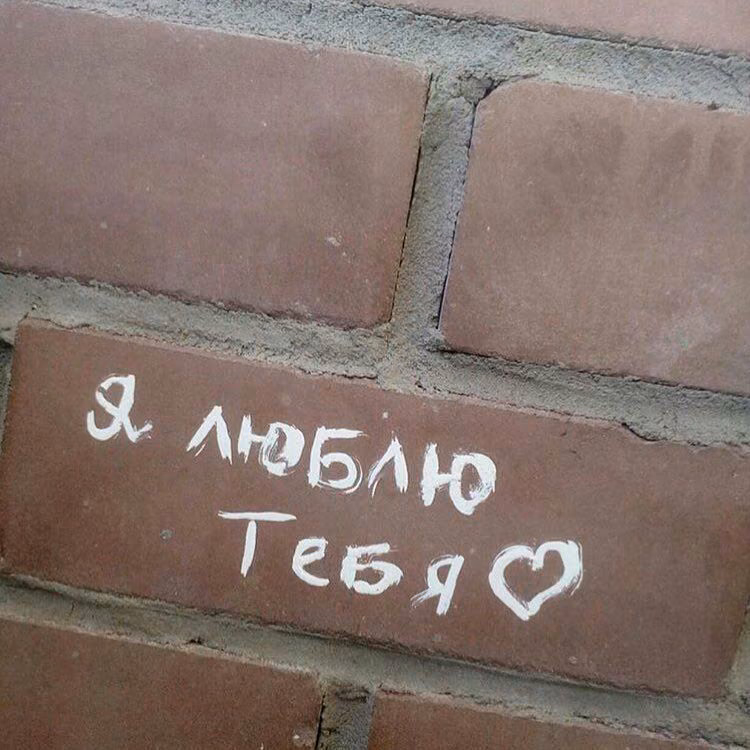 Я люблю
Тебя♡